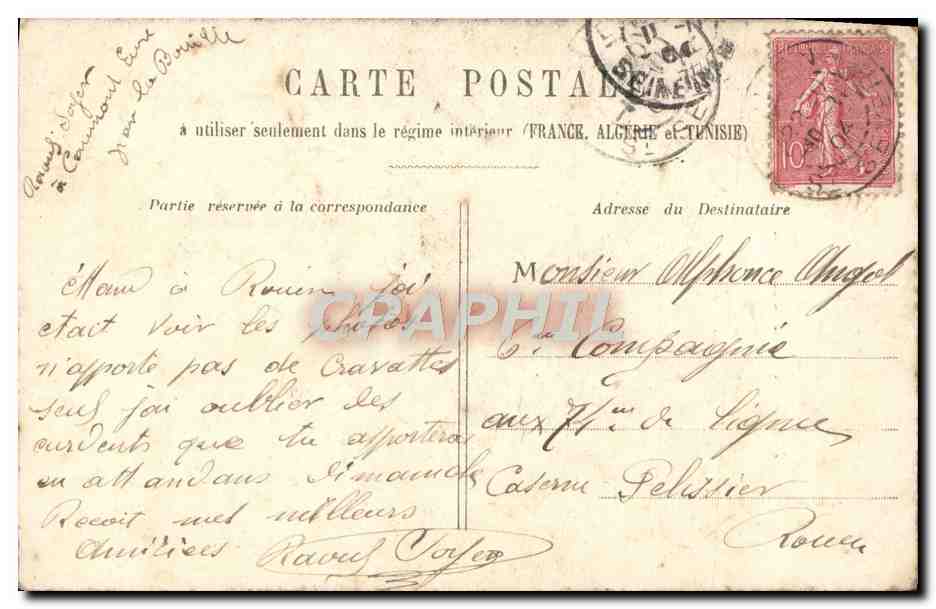 Raoul Soyer
à Caumont Eure
par la Bouille
CARTE POSTALE
à utiliser seulement dans le régime intérieur (FRANCE, ALGERIE et TUNISIE)
SEINE
10
Partie réservée à la correspondance
Adresse du Destinataire
Étant à Rouen jai
était voir les photos
n'apporte pas de cravattes
seul jai oublier des
curdents que tu apporteras
en attandans dimanche
Recoit mes meilleurs
Amitiees Raoul Soyer
Monsieur Alphonce
6me Compagnie
aux 74me de ligne
Caserne Pelissier
Rouen
CPAPHIL